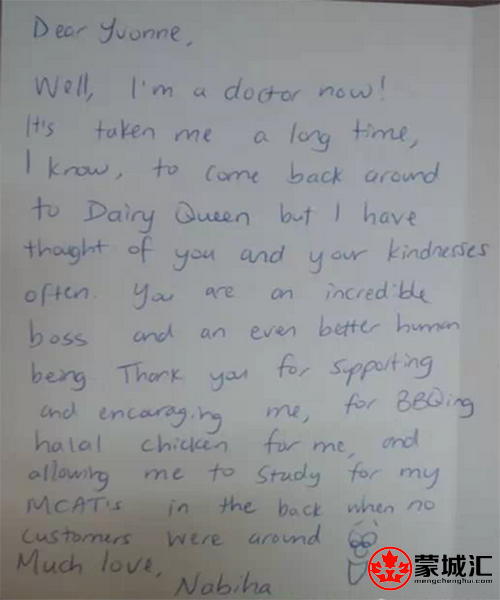 Dear Yvonne,
Well, I'm a doctor now!
It's taken me a long time,
I know, to come back around
to Dairy Queen but I have
thought of you and your kindnesses
often. You are an incredible
boss and an even better human
being. Thank you for supporting
and encaraging me, for BBQing
halal chicken for me, and
allowing me to study for my
MCAT's in the back when no
customers were around
Much love,
Nabiha
蒙城汇
mengchenghui.com